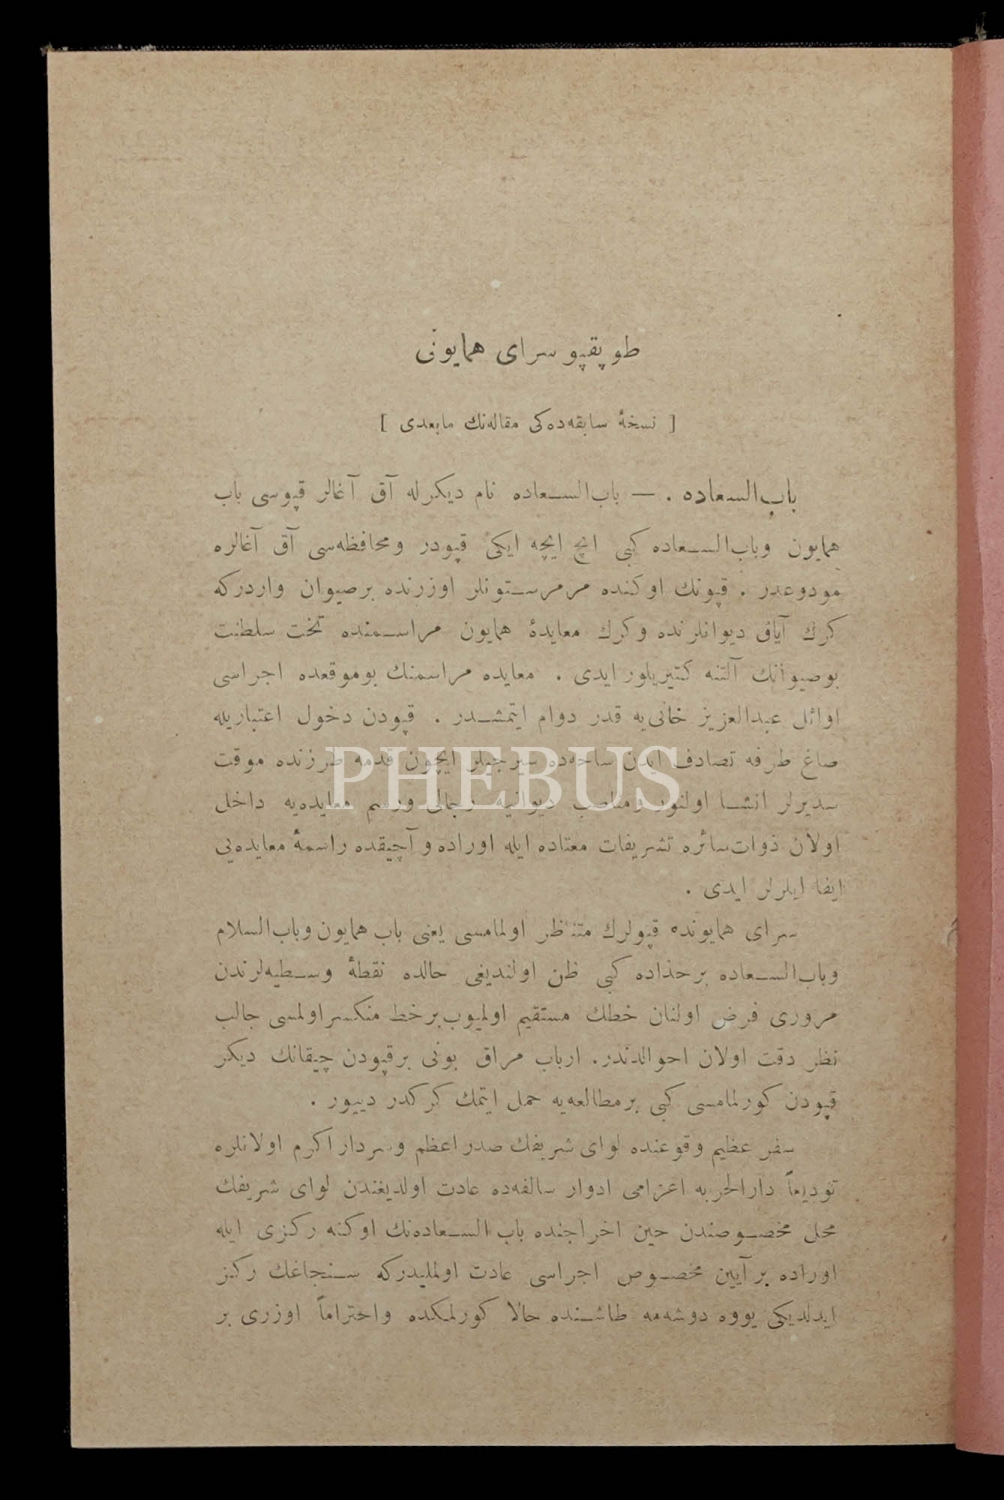 طوپقپو سرای همایونی
[ نسخهٔ سابقه‌ده‌کی مقاله‌نك مابعدی ]
باب‌السعاده . — باب‌السعاده نام دیکرله آق آغالر قپوسی باب
همایون وباب‌السعاده کبی ایچ ایچه ایکی قپودر ومحافظه‌سی آق آغالره
مودوعدر . قپونك اوکنده مرمرستونلر اوزرنده برصیوان واردرکه
کرك آیاق دیوانلرنده وکرك معایدهٔ همایون مراسمنده تخت سلطنت
بوصیوانك آلتنه کتیریلور ایدی . معایده مراسمنك بوموقعده اجراسی
اوائل عبدالعزیز خانی‌یه قدر دوام ایتمشدر . قپودن دخول اعتباریله
صاغ طرفه تصادف ایدن ساحه‌ده سیرجیلر ایچون قدمه طرزنده موقت
سدیرلر انشا اولنور ومناصب دیوانیه رجالی ورسم معایده‌یه داخل
اولان ذوات‌سائره تشریفات معتاده ایله اوراده و آچیقده راسمهٔ معایده‌یی
ایفا ایلرلر ایدی .
سرای همایونده قپولرك متناظر اولمامسی یعنی باب همایون وباب‌السلام
وباب‌السعاده برحذاده کبی ظن اولندیغی حالده نقطهٔ وسطیه‌لرندن
مروری فرض اولنان خطك مستقیم اولمیوب‌برخط منکسراولمسی جالب
نظر دقت اولان احوالدندر. ارباب مراق بونی برقپودن چیقانك دیکر
قپودن کورلمامسی کبی برمطالعه‌یه حمل ایتمك کرکدر دییور .
سفر عظیم وقوعنده لوای شریفك صدراعظم وسرداراکرم اولانلره
تودیعاً دارالحربه اعزامی ادوار سالفه‌ده عادت اولدیغندن لوای شریفك
محل مخصوصندن حین اخراجنده باب السعاده‌نك اوکنه رکزی ایله
اوراده برآیین مخصوص اجراسی عادت اولملیدرکه سنجاغك رکز
ایدلدیکی یووه دوشه‌مه طاشنده حالا کورلمکده واحتراماً اوزری بر
PHEBUS